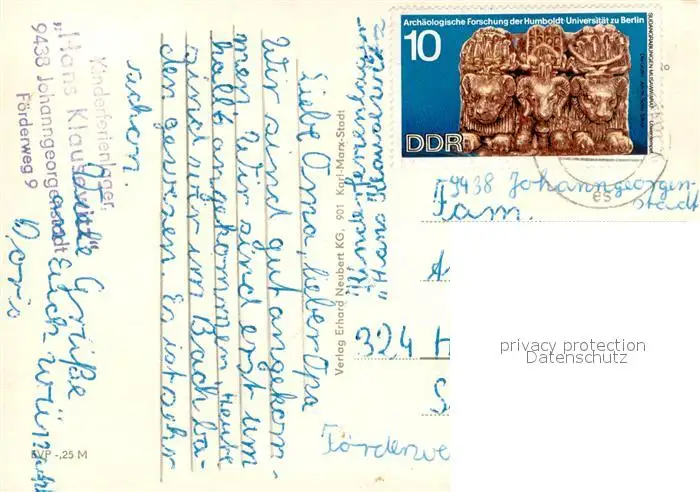 Kinderferienlager
"Hans Klausewitz"
9438 Johanngeorgenstadt
Förderweg 9
Liebe Oma, lieber Opa
Wir sind gut angekom-
men. Wir sind erst um
halb angekommen, heute
sind wir im Bach ba-
den gewesen. Es ist sehr
schön.
Viele Grüße
Euch
Doris
EVP -,25 M
Verlag Erhard Neubert KG, 901 Karl-Marx-Stadt
Kinderferienlager
"Hans Klausewitz
Archäologische Forschung der Humboldt-Universität zu Berlin
10
DDR
9438 Johanngeorgen-
stadt
Fam.
324 H
Förderwe
privacy protection
Datenschutz